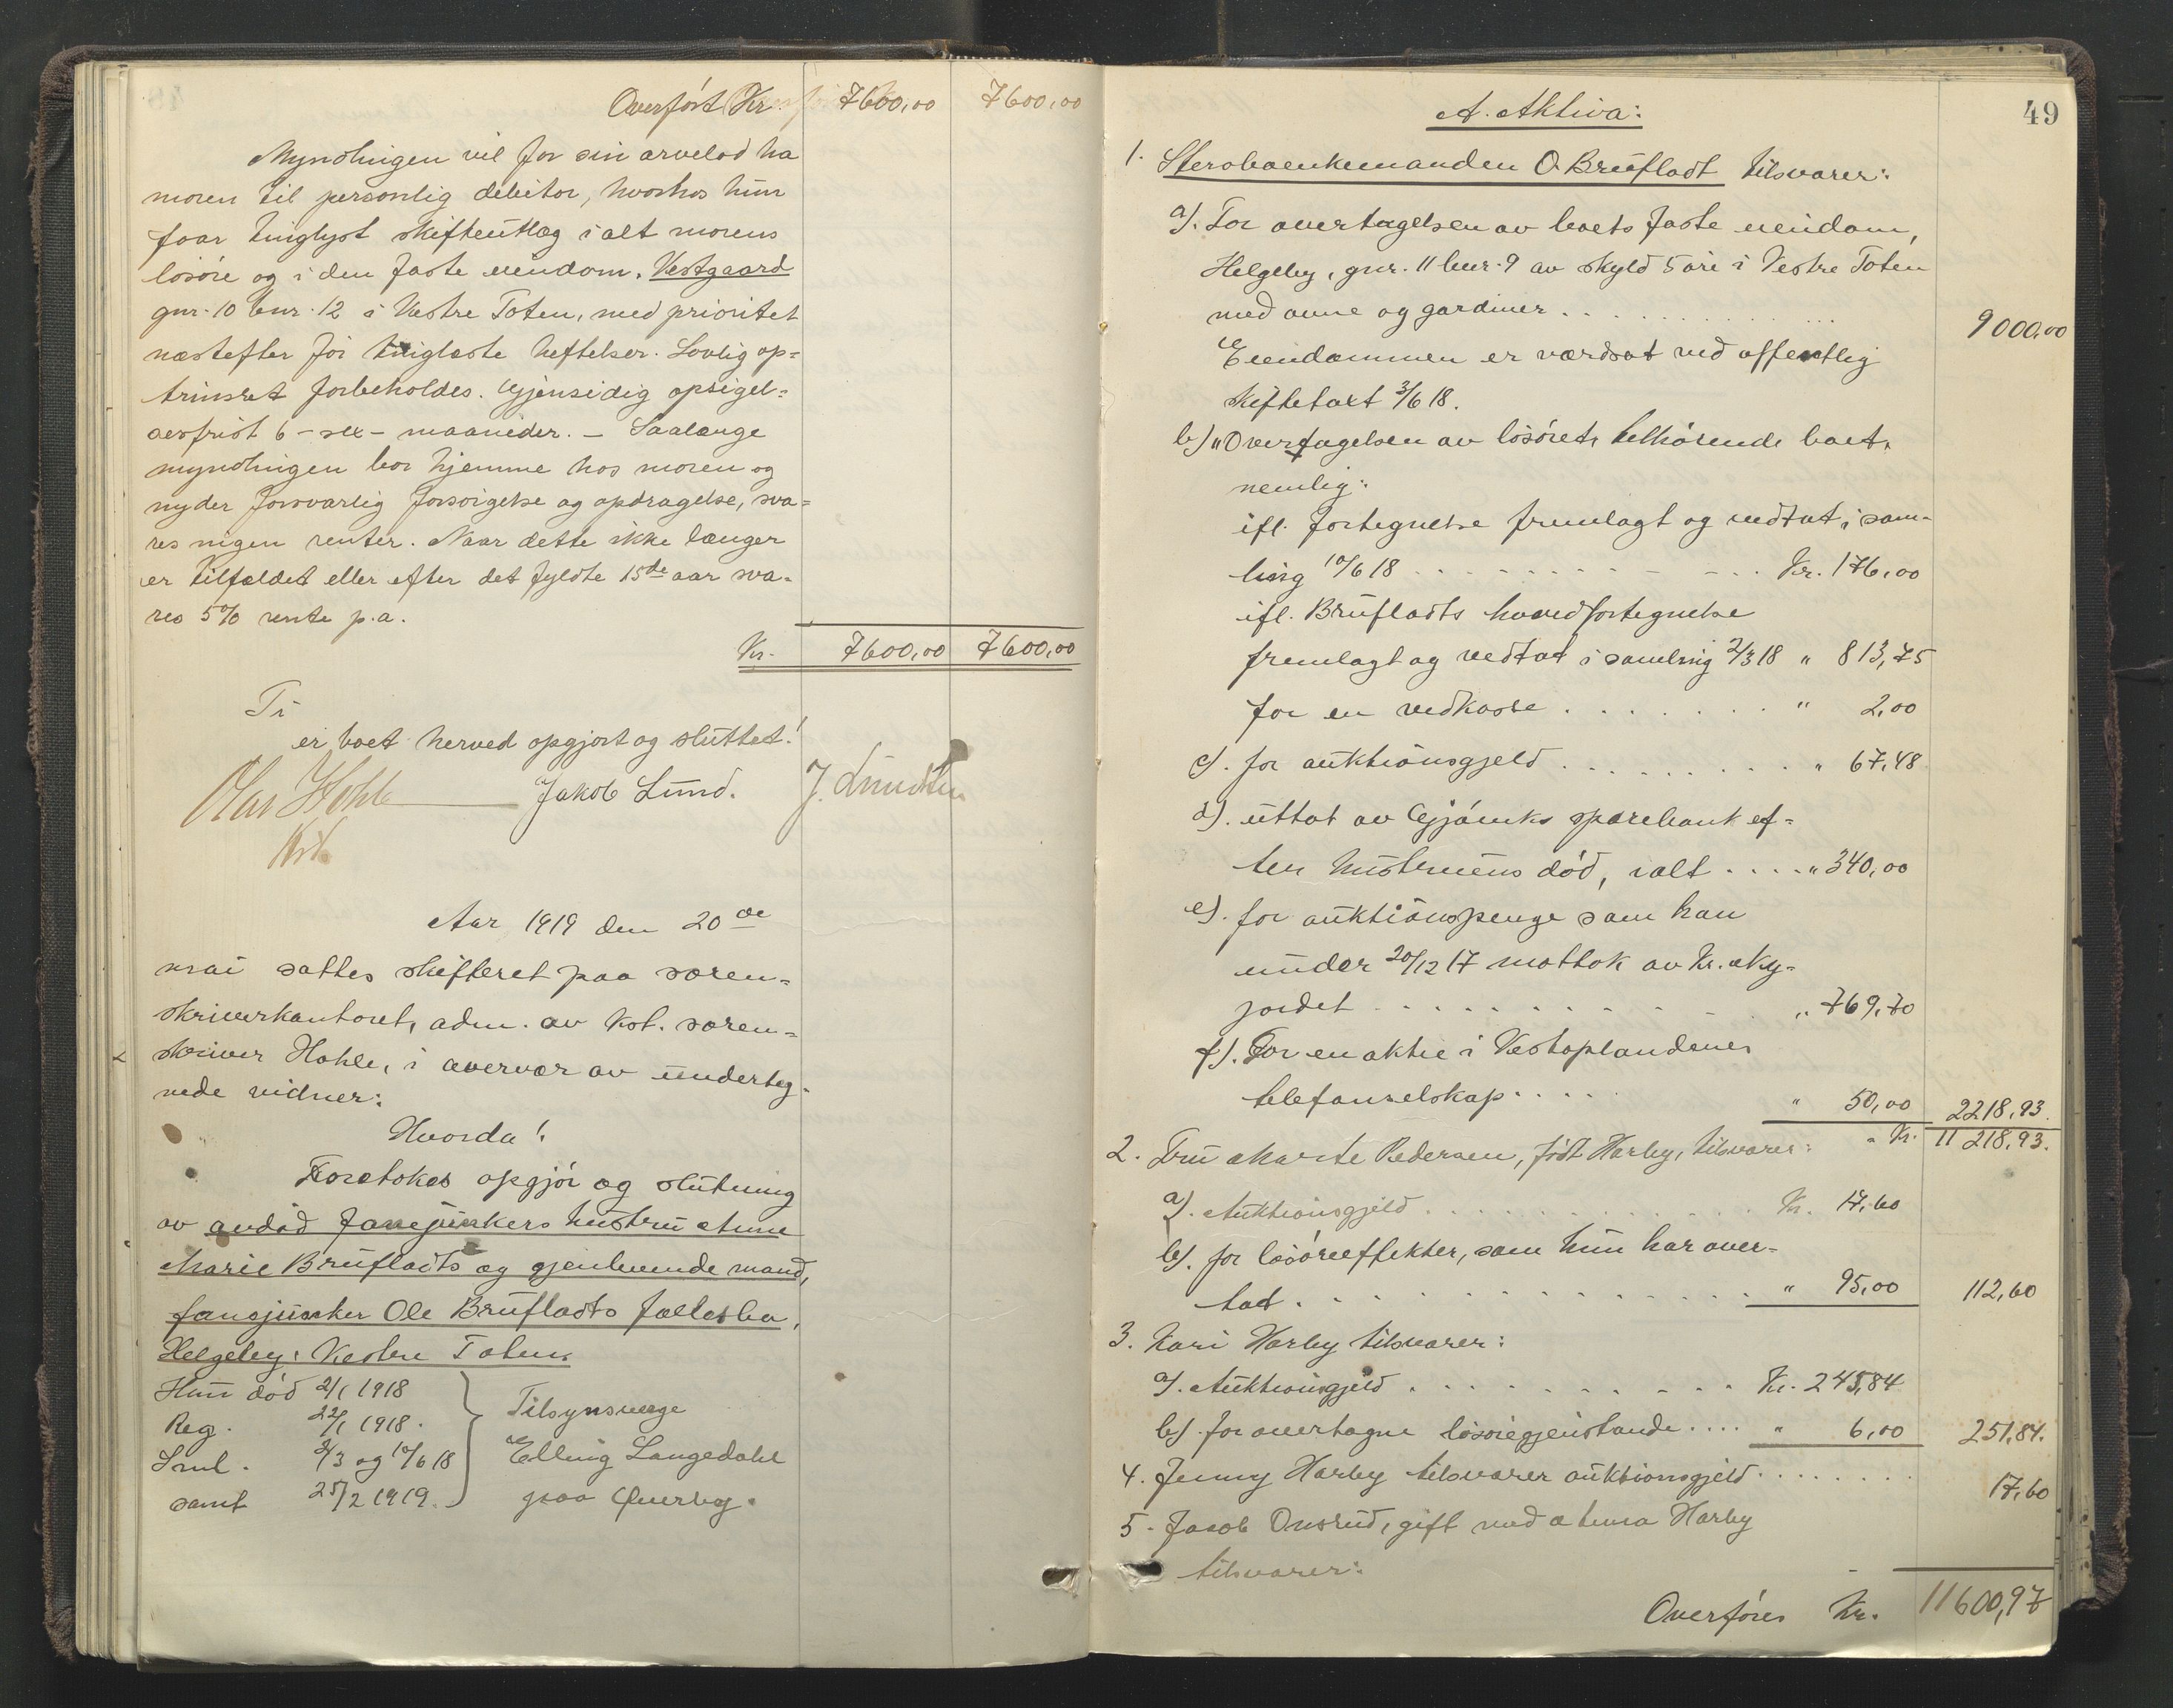 Overført Kr. 7600,00 7600,00
Myndlingen vil for sin arvelod ha
moren til personlig debitor, hvorhos hun
faar tinglyst skifteutlæg i alt morens
løsøre og i den faste eiendom, Vestgaard
gnr. 10 bnr. 12 i Vestre Toten, med prioritet
næstefter før tinglæste heftelser. Lovlig op=
trinsret forbeholdes. Gjensidig opsigel=
sesfrist 6 - sex - maaneder. - Saalænge
myndlingen bor hjemme hos moren og
nyder forsvarlig forsørgelse og opdragelse, sva=
res ingen renter. Naar dette ikke længer
er tilfældet eller efter det fyldte 15de aar sva=
res 5% rente p.a.
Kr. 7600,00 7600,00
Ti
er boet herved opgjort og sluttet!
Olav Hohle Jakob Lund. J. Lundsten
Kst.
Aar 1919 den 20de
mai sattes skifteret paa soren=
skriverkontoret, adm. av kst. soren=
skriver Hohle, i overvær av underteg=
nede vidner:
Hvorda!
Foretokes opgjør og slutning
av avdød fanejunkers hustru Anne
Marie Brufladts og gjenlevende mand,
fanejunker Ole Brufladts fællesbo,
Helgeby, Vestre Toten.
Hun død 2/1 1918
Reg. 22/1 1918.
Saml. 2/3 og 10/6 18
samt 25/2 1919.
Tilsynsverge
Elling Langedahl
paa Overby.
49
A. Aktiva:
1. Stervboenkemanden O. Brufladt tilsvarer:
a). For overtagelsen av boets faste eiendom,
Helgeby, gnr. 11 bnr. 9 av skyld 5 øre i Vestre Toten
med ovne og gardiner . . . 9000,00
Eiendommen er værdsat ved offentlig
skiftetaxt 3/6 18.
b) " Overtagelsen av løsøret, tilhørende boet,
nemlig:
ifl. fortegnelse fremlagt og vedtat i sam=
ling 10/6 18 . . . Kr. 176,00
ifl. Brufladts hovedfortegnelse
fremlagt og vedtat i samling 2/3 18 " 813,75
for en vedkasse . . . " 2,00
c). for auktionsgjeld . . . " 67,48
d). uttat av Gjøviks sparebank ef=
ter hustruens død, ialt . . . " 340,00
e). for auktionspenge som han
under 20/12 17 mottok av Kr. Aky=
jordet . . . " 769,70
f). For en aktie i Vestoplandenes
telefonselskap . . . " 50,00 2218,93.
" Kr. 11 218,93.
2. Fru Marte Pedersen, født Harby, tilsvarer:
a). Auktionsgjeld . . . Kr. 17,60
b). for løsøreeffekter, som hun har over=
tat . . . " 95,00 112,60
3. Kari Harby tilsvarer:
a). Auktionsgjeld . . . Kr. 245,84
b). for overtagne løsøregjenstande . . . " 6,00 251,84.
4. Jenny Harby tilsvarer auktionsgjeld . . . 17,60
5. Jacob Onsrud, gift med Anna Harby
tilsvarer:
Overføres Kr. 11600,97